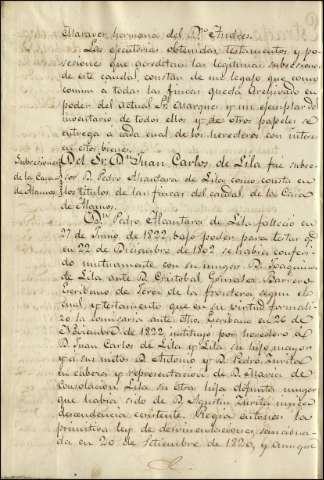 Narvaez, hermana del Dn. Andres.
Las ejecutorias obtenidas, testamentos y po-
sesiones que acreditan las legitimas subcesiones
de este caudal, constan de un legajo que como
comun a todas las fincas queda Archivado en
poder del actual Sr. Marques, y un ejemplar de
inventario de todos ellos y de otros papeles se
entrega a cada cual de los herederos con interes
en estos bienes.
Subcesiones de la Casa de Alamos.
Del Sr. Dn. Juan Carlos de Lila fue subce-
sor D. Pedro Alcantara de Lila, como consta en
los titulos de las fincas del caudal, de la Casa
de Alamos.
Dn. Pedro Alcantara de Lila falleció en
27 de Junio de 1822, bajo poder para testar q.
en 22 de Diciembre de 1802 se habia conferi-
do mutuamente con su muger D. Joaquina
de Lila ante D. Cristobal Gonzalez Barrera
Escribano de Jerez de la frontera, segun el
cual, y testamento que en su virtud formali-
zo la comisaria ante otro Escribano en 26 de
Noviembre de 1822 instituyo por heredero a
D. Juan Carlos de Lila y Lila su hijo mayor
y a sus nietos D. Antonio y D. Pedro Zurita
en cabeza y representacion de D. Maria de
Consolacion Lila su otra hija difunta muger
que habia sido de D. Agustin Zurita unica
descendencia existente. Regia entonces la
primitiva ley de desvinculaciones, sanciona-
da en 20 de Setiembre de 1820, y aunque